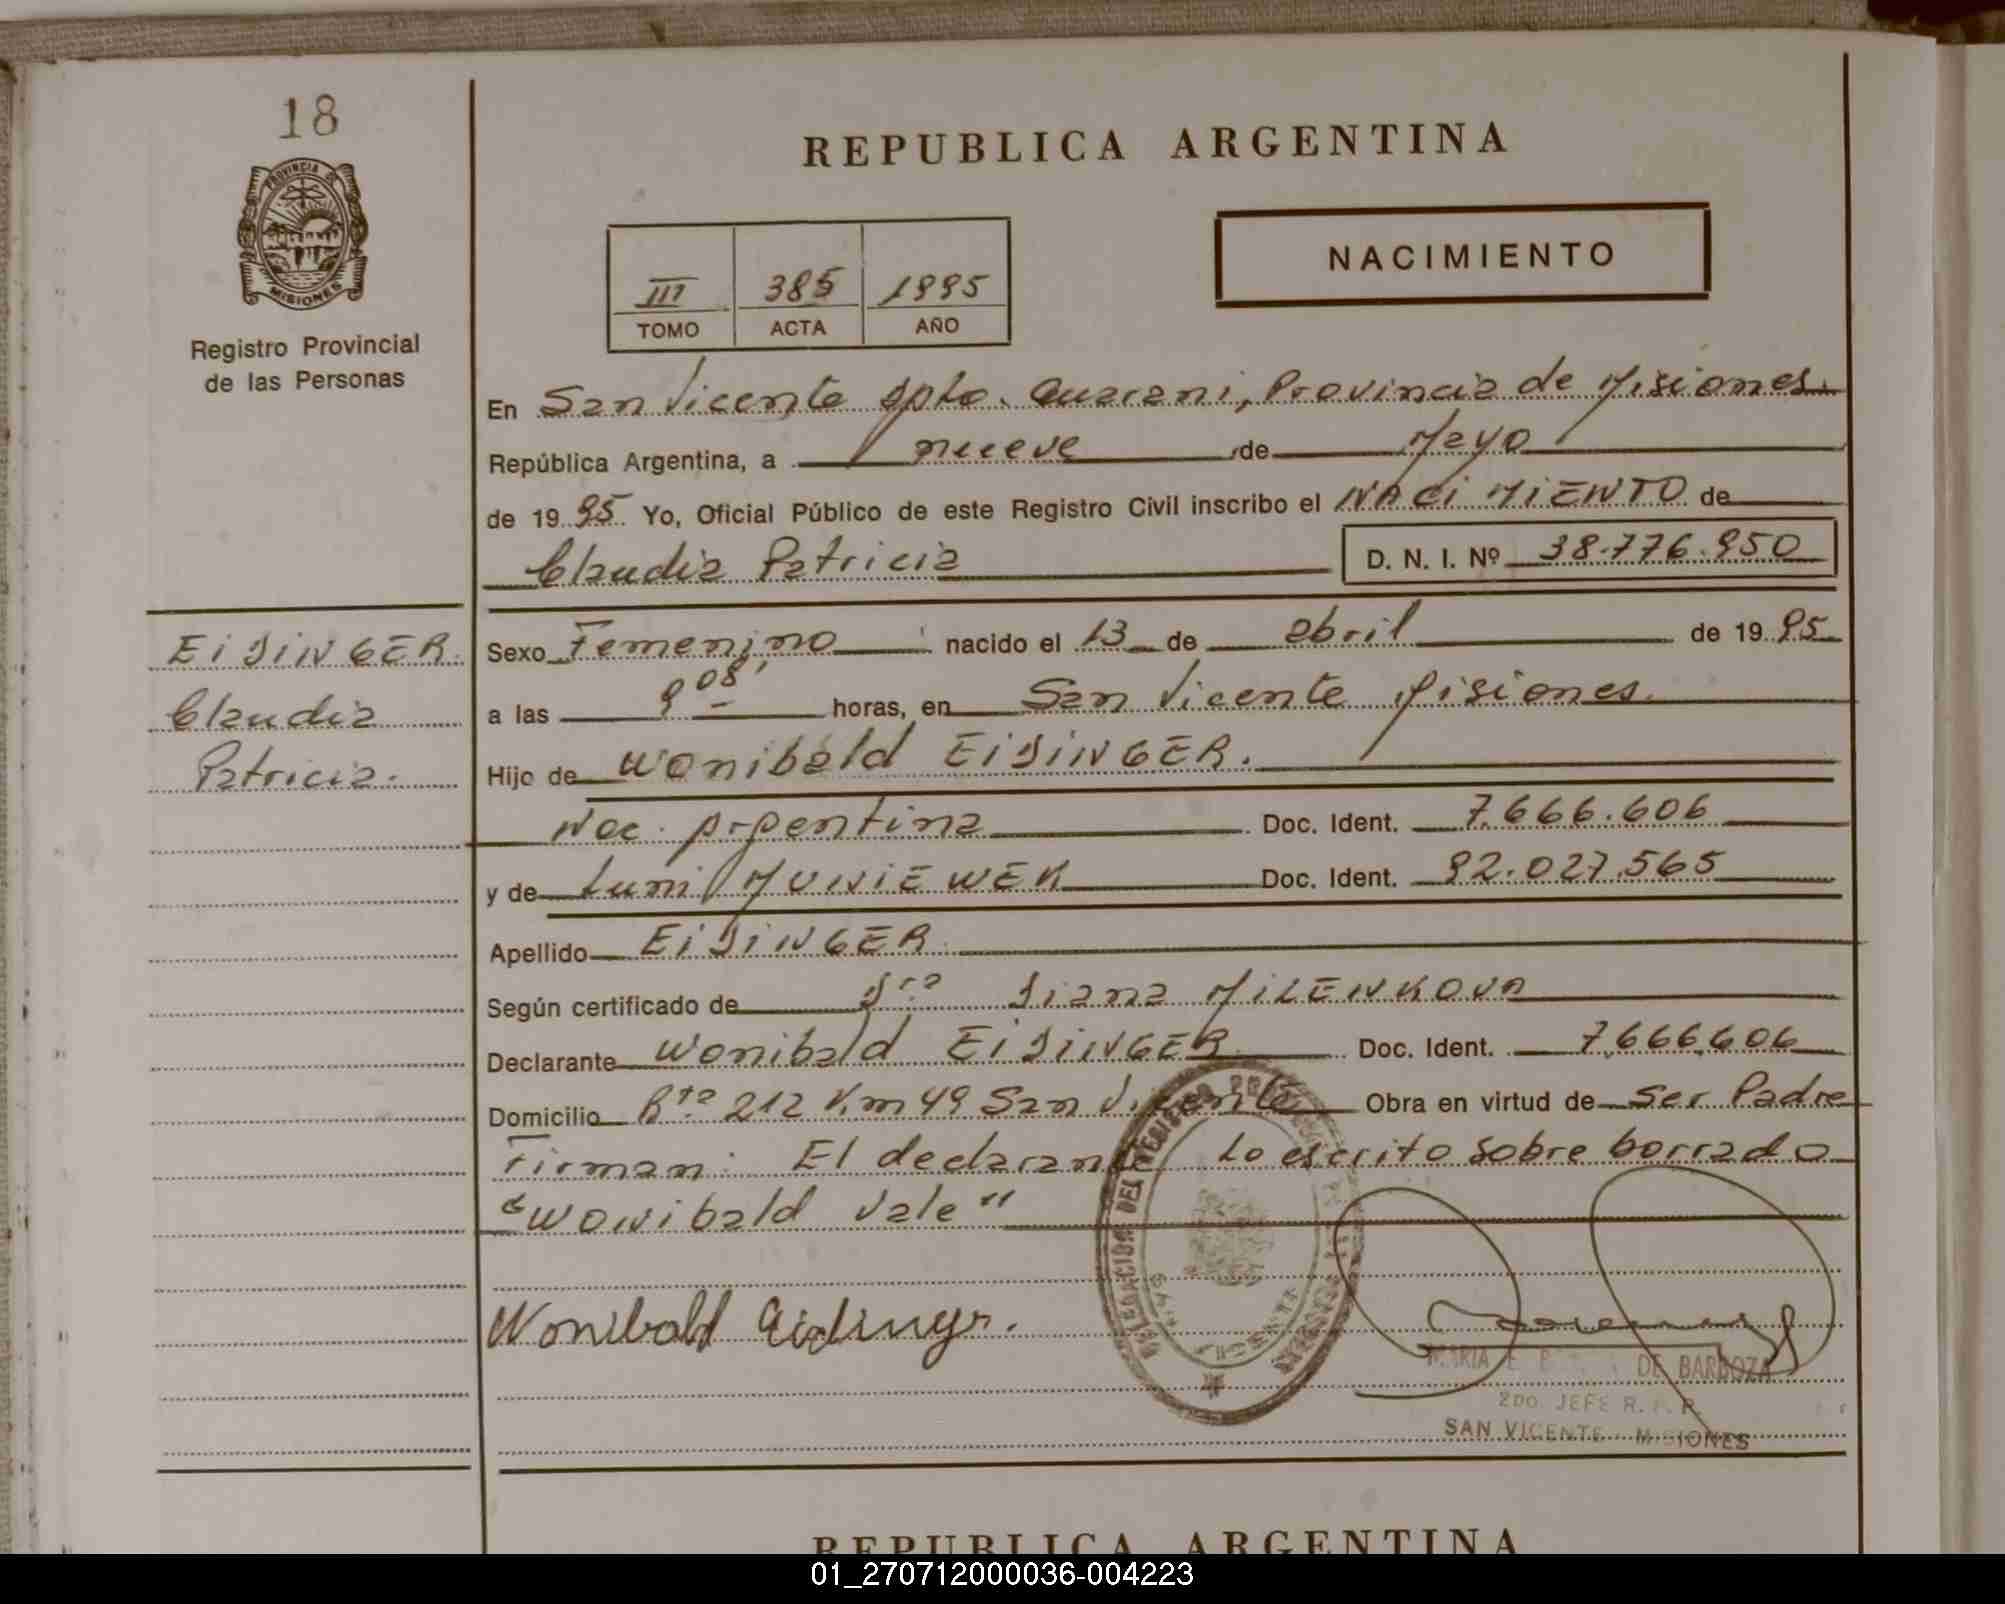 18
PROVINCIA DE
MISIONES
Registro Provincial
de las Personas
REPUBLICA ARGENTINA
NACIMIENTO
III 385 1995
TOMO ACTA AÑO
En San Vicente Dpto. Guarani, Provincia de Misiones.
República Argentina, a nueve de Mayo
de 1995 Yo, Oficial Público de este Registro Civil inscribo el NACIMIENTO de
Claudia Patricia D. N. I. Nº 38.776.950
EiSiNGER
Claudia
Patricia.
Sexo Femenino nacido el 13 de abril de 1995
a las 9 08' horas, en San Vicente Misiones.
Hijo de Wonibald EiSiNGER.
Nac. Argentina Doc. Ident. 7.666.606
y de Lumi MUNiEWEK Doc. Ident. 92.027.565
Apellido EiSiNGER.
Según certificado de Dra Diana MiLENKOVA
Declarante Wonibald EiSiNGER Doc. Ident. 7.666.606
Domicilio Rta 212 Km 49 San Vicente Obra en virtud de Ser Padre
Firman: El declarante Lo escrito sobre borrado
"Wonibald Vale"
Wonibald Eisinger.
DELEGACION DEL REGISTRO
MARIA E. DE BARBOZA
2DO JEFE R. P. P.
SAN VICENTE - MISIONES
REPUBLICA ARGENTINA
01_270712000036-004223